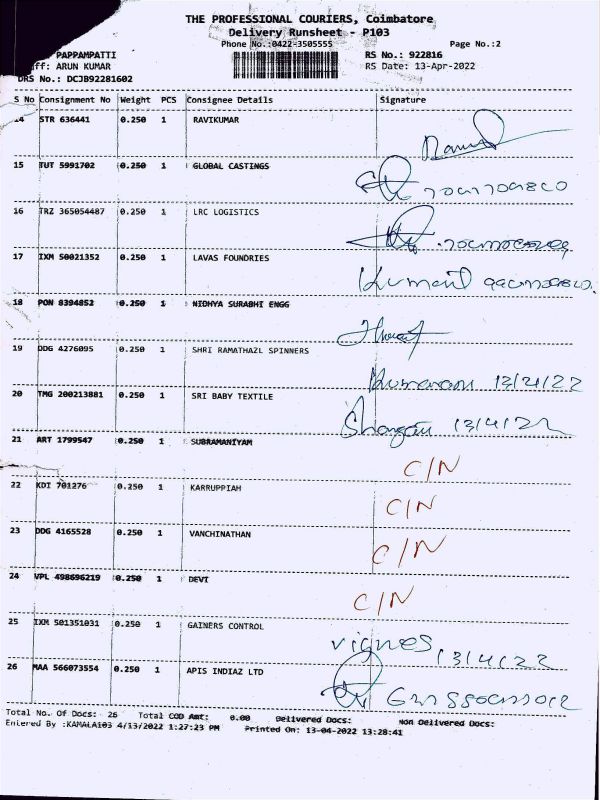 THE PROFESSIONAL COURIERS, Coimbatore
Delivery Runsheet - P103
Phone No.:0422-3505555
Page No.:2
PAPPAMPATTI
RS No.: 922816
ff: ARUN KUMAR
RS Date: 13-Apr-2022
DRS No.: DCJB92281602
S No Consignment No Weight PCS Consignee Details Signature
14 STR 636441 0.250 1 RAVIKUMAR
15 TUT 5991702 0.250 1 GLOBAL CASTINGS
16 TRZ 365054487 0.250 1 LRC LOGISTICS
17 IXM 50021352 0.250 1 LAVAS FOUNDRIES
Kumar
18 PON 8394852 0.250 1 NIDHYA SURABHI ENGG
19 DDG 4276095 0.250 1 SHRI RAMATHAZL SPINNERS
Kumaran 13/4/22
20 TMG 200213881 0.250 1 SRI BABY TEXTILE
13/4/22
21 ART 1799547 0.250 1 SUBRAMANIYAM
C/N
22 KDI 701276 0.250 1 KARRUPPIAH
C/N
23 DDG 4165528 0.250 1 VANCHINATHAN
C/N
24 VPL 498696219 0.250 1 DEVI
C/N
25 IXM 501351031 0.250 1 GAINERS CONTROL
vignes 13/4/22
26 MAA 566073554 0.250 1 APIS INDIAZ LTD
Total No. Of Docs: 26 Total COD Amt: 0.00 Delivered Docs: Non Delivered Docs:
Entered By :KAMALA103 4/13/2022 1:27:23 PM Printed On: 13-04-2022 13:28:41